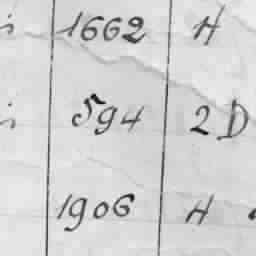 1662 H
594 2D
1906 H